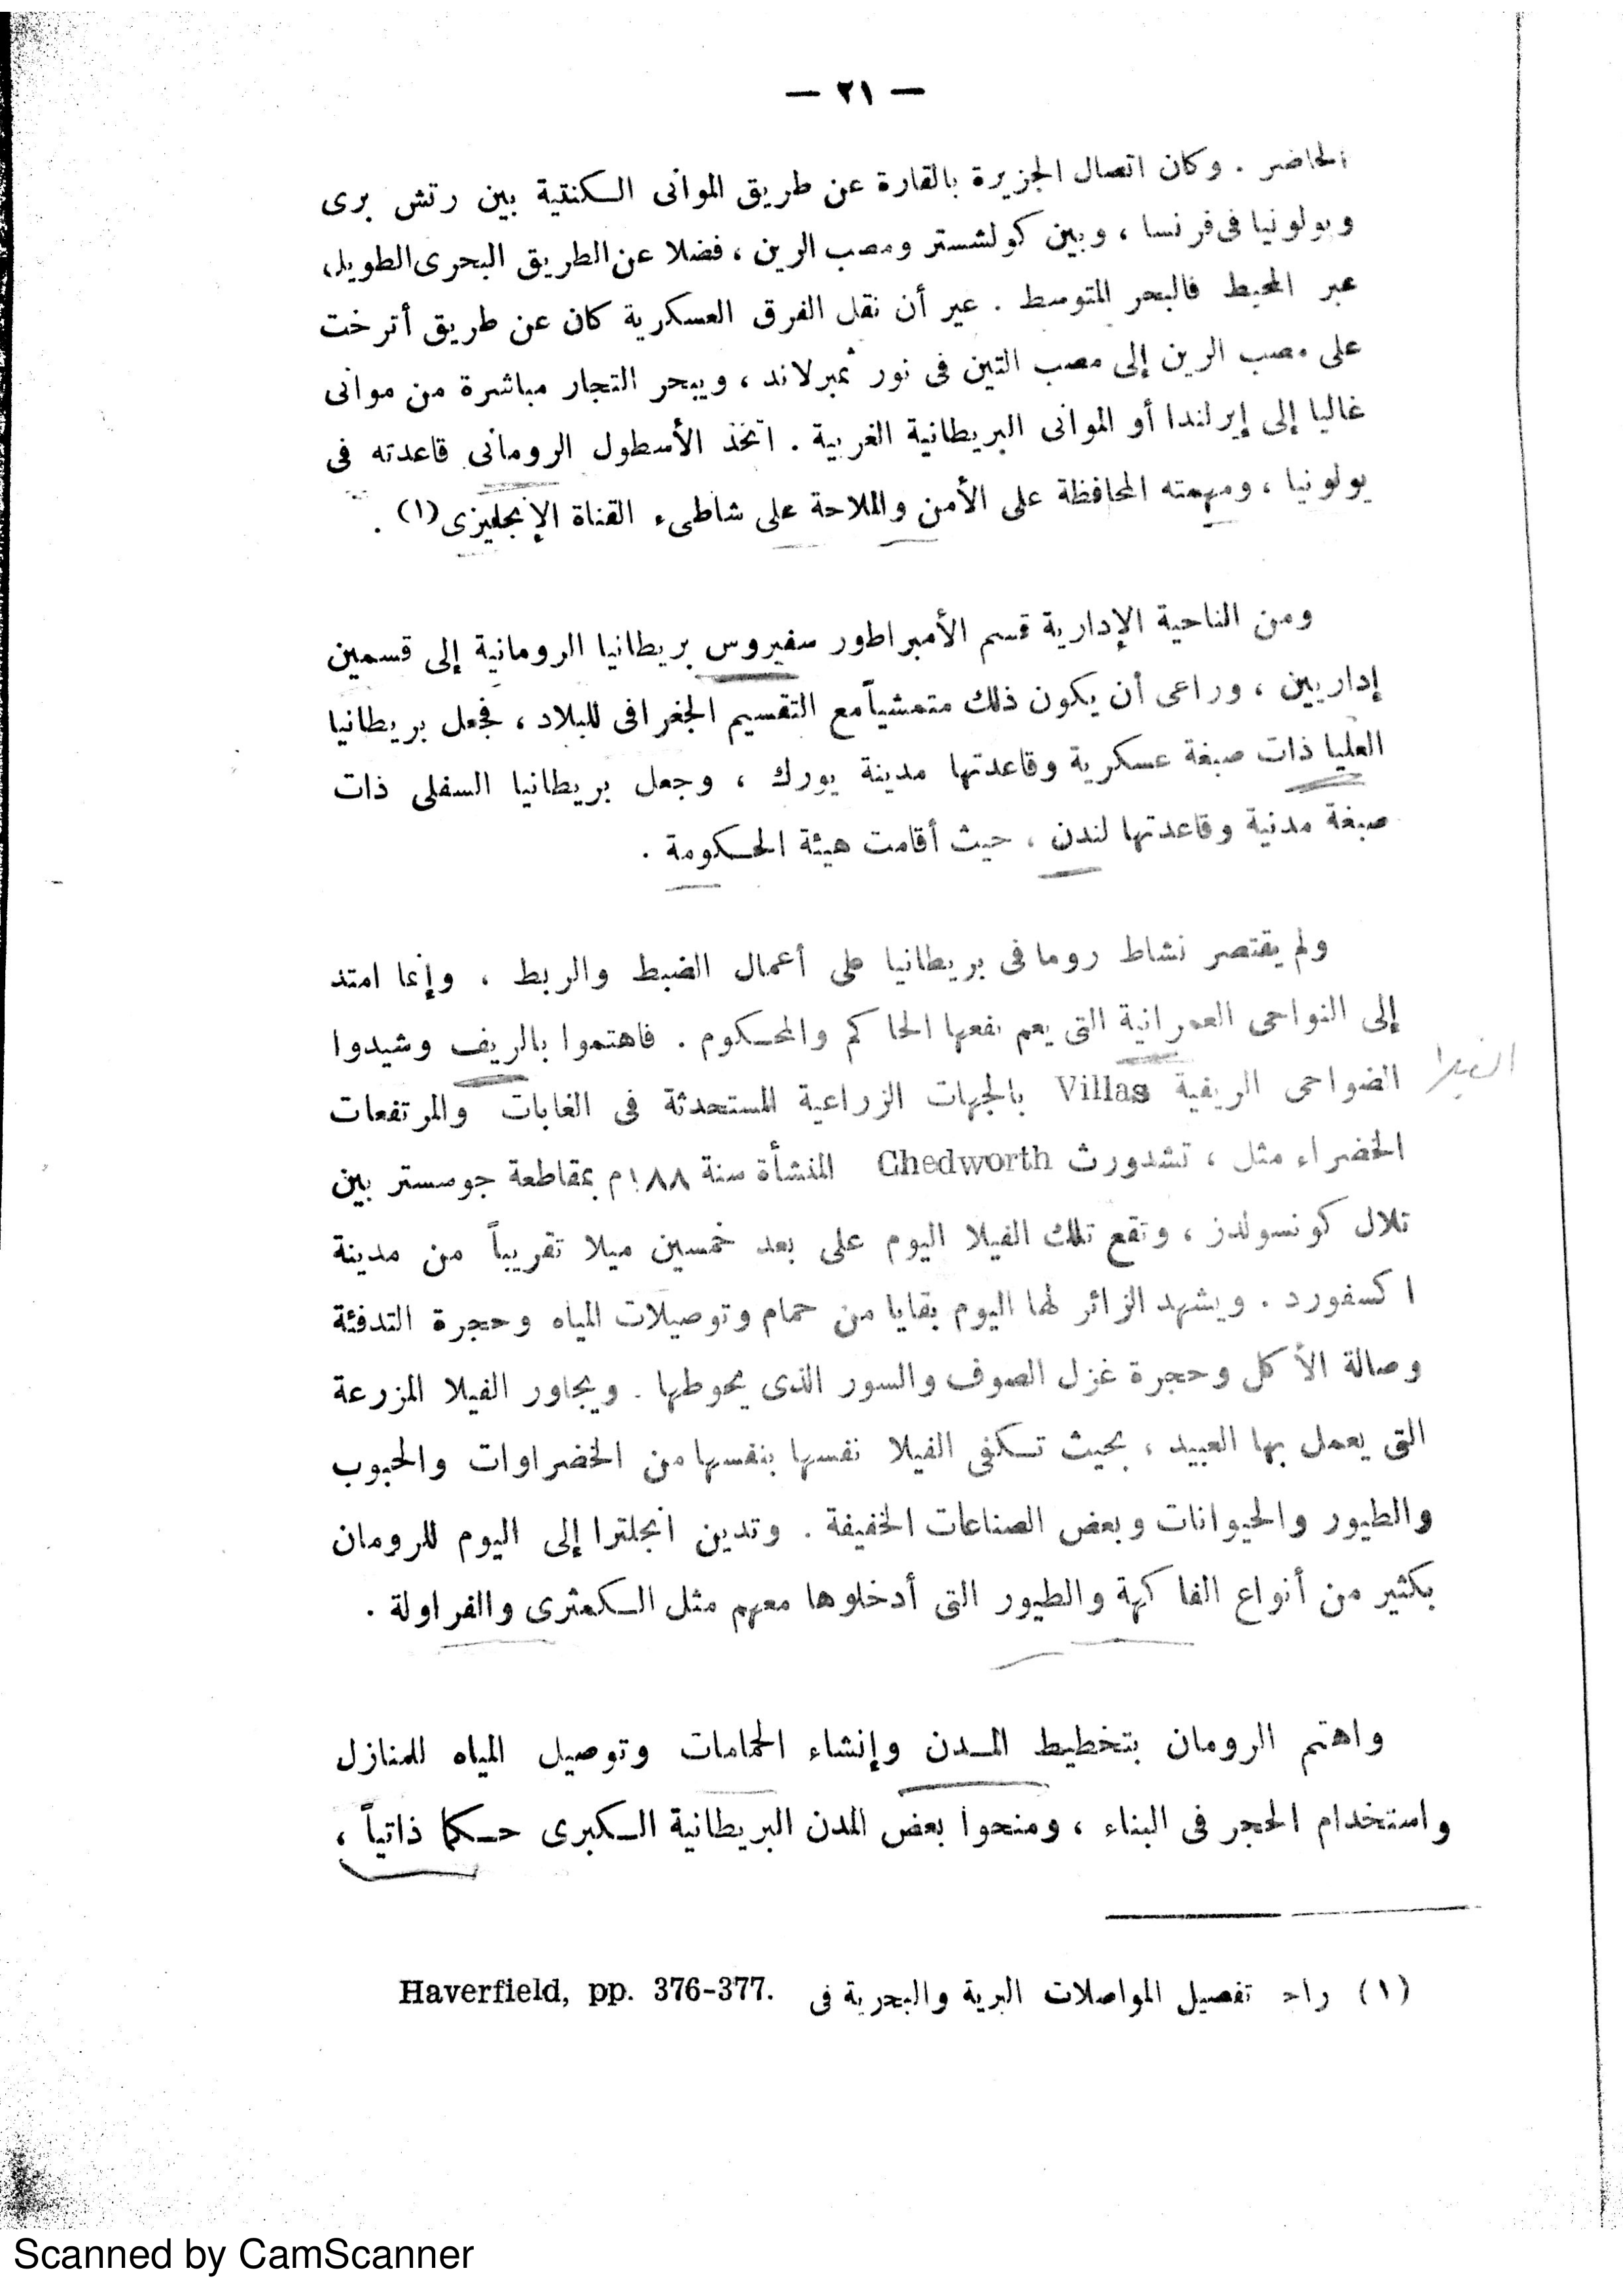 — ٢١ —
الحاضر . وكان اتصال الجزيرة بالقارة عن طريق الموانى الكنتية بين رتش برى
وبولونيا فى فرنسا ، وبين كولشستر ومصب الرين ، فضلا عن الطريق البحرى الطويل
عبر المحيط فالبحر المتوسط . غير أن نقل الفرق العسكرية كان عن طريق أترخت
على مصب الرين إلى مصب التين فى نورثمبرلاند ، ويبحر التجار مباشرة من موانى
غاليا إلى إيرلندا أو الموانى البريطانية الغربية . اتخذ الأسطول الرومانى قاعدته فى
بولونيا ، ومهمته المحافظة على الأمن والملاحة على شاطىء القناة الإنجليزى (١) .
ومن الناحية الإدارية قسم الأمبراطور سفيروس بريطانيا الرومانية إلى قسمين
إداريين ، وراعى أن يكون ذلك متمشياً مع التقسيم الجغرافى للبلاد ، فجعل بريطانيا
العليا ذات صبغة عسكرية وقاعدتها مدينة يورك ، وجعل بريطانيا السفلى ذات
صبغة مدنية وقاعدتها لندن ، حيث أقامت هيئة الحكومة .
ولم يقتصر نشاط روما فى بريطانيا على أعمال الضبط والربط ، وإنما امتد
إلى النواحى العمرانية التى يعم نفعها الحاكم والمحكوم . فاهتموا بالريف وشيدوا
الضواحى الريفية Villas بالجهات الزراعية المستحدثة فى الغابات والمرتفعات
الفيلا
الخضراء مثل ، تشدورث Chedworth المنشأة سنة ١٨٨م بمقاطعة جوسستر بين
تلال كونسولدز ، وتقع تلك الفيلا اليوم على بعد خمسين ميلا تقريباً من مدينة
اكسفورد . ويشهد الزائر لها اليوم بقايا من حمام وتوصيلات المياه وحجرة التدفئة
وصالة الأكل وحجرة غزل الصوف والسور الذى يحوطها . ويجاور الفيلا المزرعة
التى يعمل بها العبيد ، بحيث تكفى الفيلا نفسها بنفسها من الخضراوات والحبوب
والطيور والحيوانات وبعض الصناعات الخفيفة . وتدين انجلترا إلى اليوم للرومان
بكثير من أنواع الفاكهة والطيور التى أدخلوها معهم مثل الكمثرى والفراولة .
واهتم الرومان بتخطيط المدن وإنشاء الحمامات وتوصيل المياه للمنازل
واستخدام الحجر فى البناء ، ومنحوا بعض المدن البريطانية الكبرى حكما ذاتياً ،
(١) راجـ تفصيل المواصلات البرية والبحرية فى Haverfield, pp. 376-377.
Scanned by CamScanner